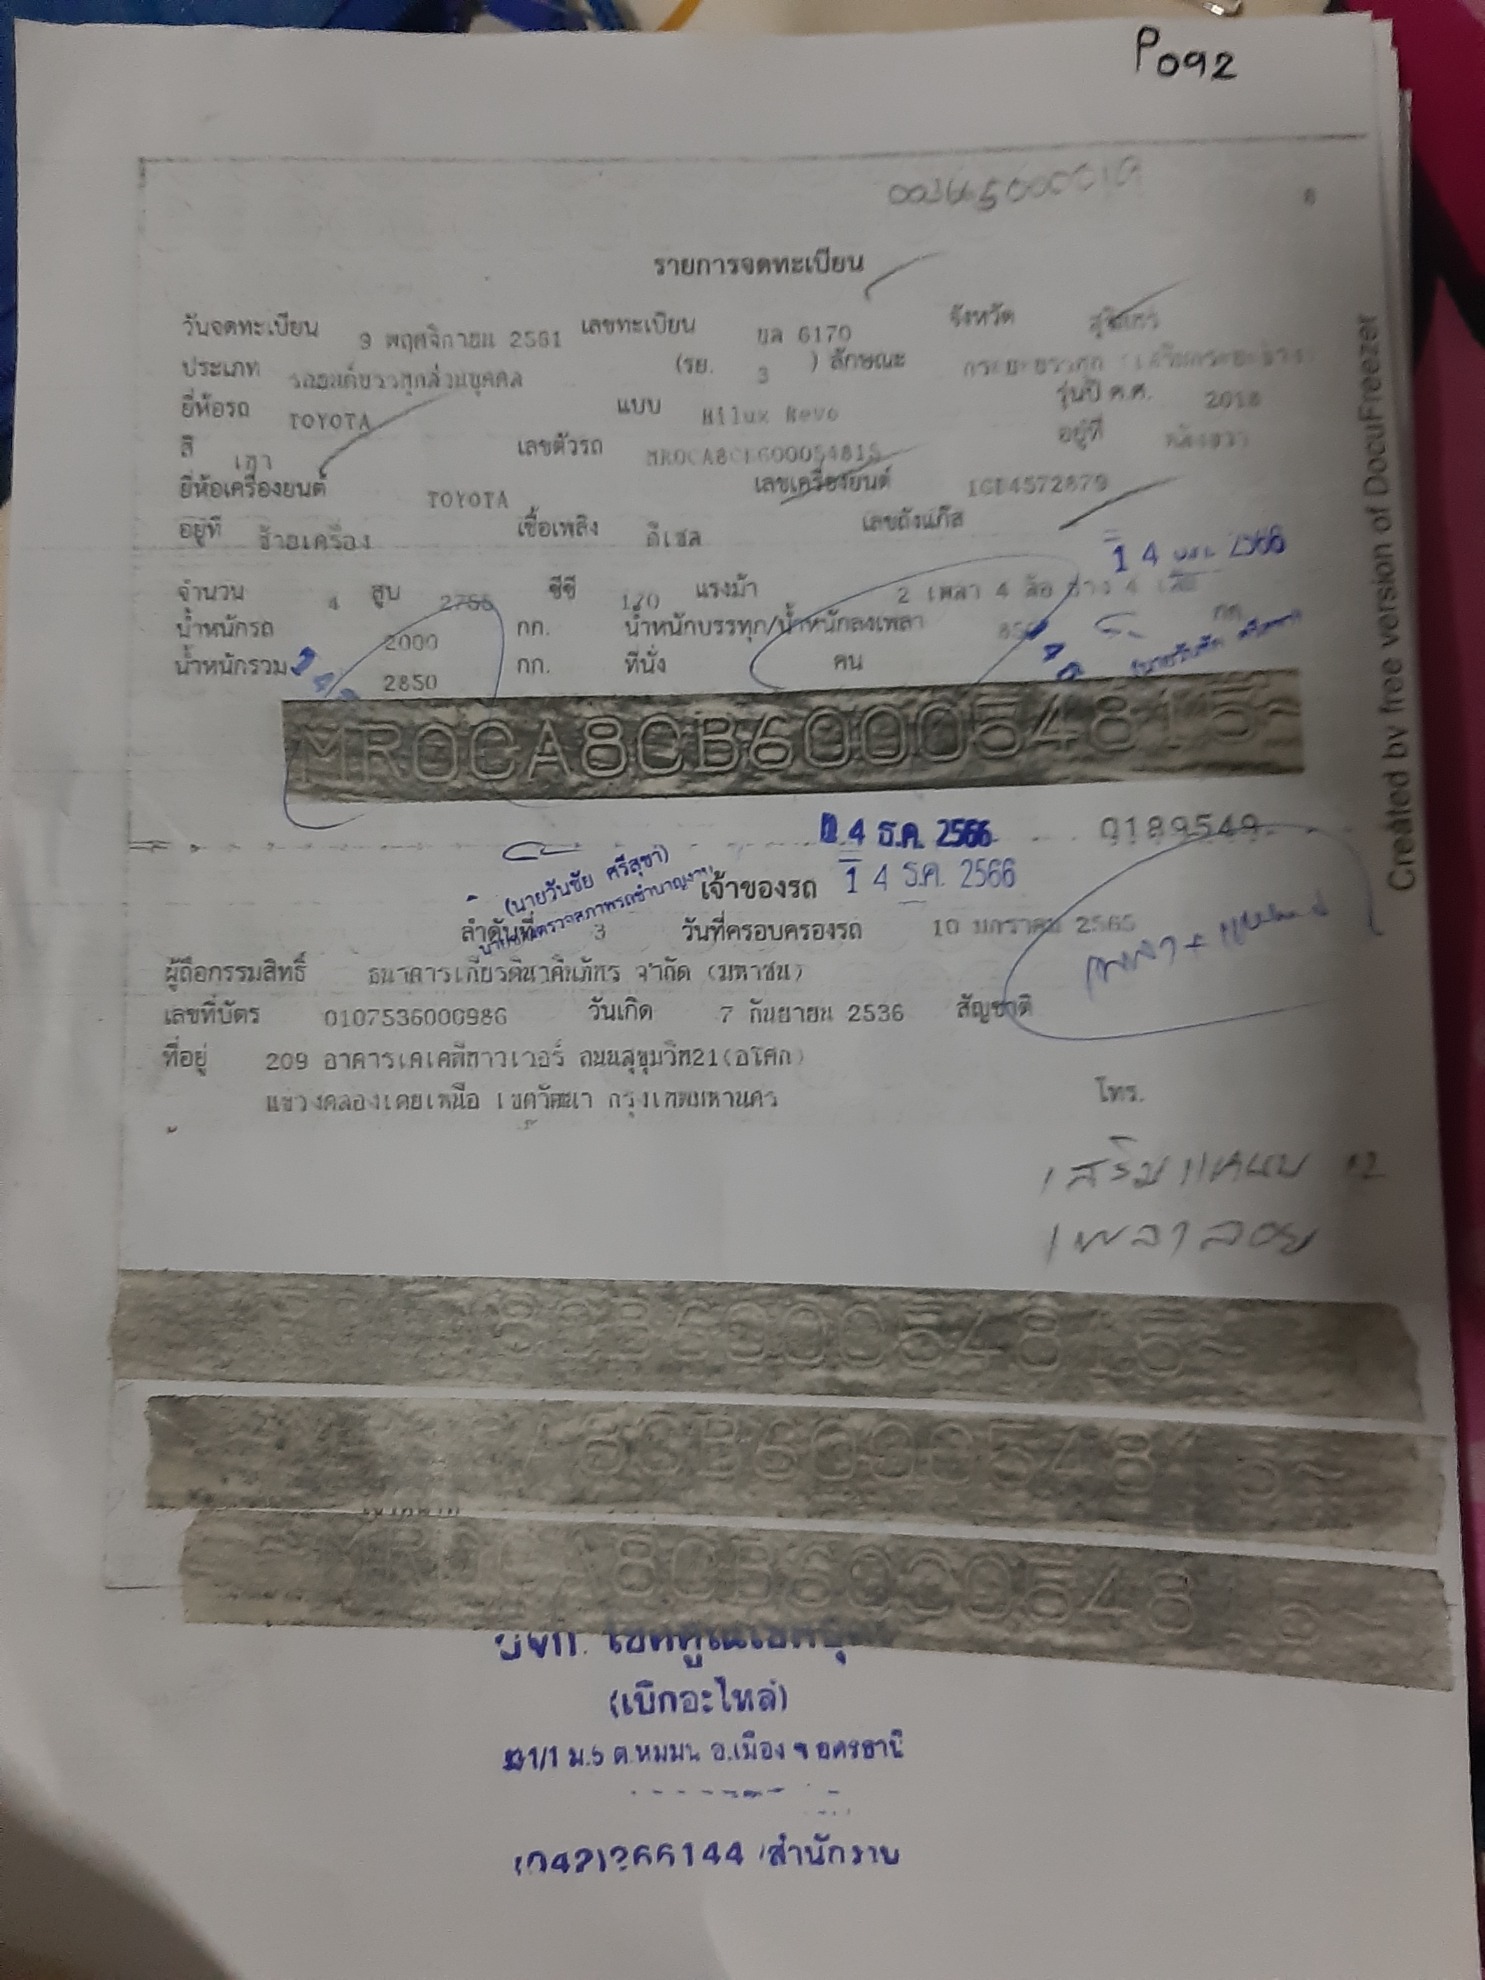 P092
รายการจดทะเบียน
วันจดทะเบียน 9 พฤศจิกายน 2561 เลขทะเบียน 6170 จังหวัด
ประเภท รถยนต์บรรทุกส่วนบุคคล (รย. 3 ) ลักษณะ
ยี่ห้อรถ TOYOTA แบบ Hilux Revo รุ่นปี ค.ศ. 2018
สี เทา เลขตัวรถ อยู่ที่
ยี่ห้อเครื่องยนต์ TOYOTA เลขเครื่องยนต์
อยู่ที่ ซ้ายเครื่อง เชื้อเพลิง ดีเซล เลขถังแก๊ส
14 2566
จำนวน 4 สูบ 2755 ซีซี 170 แรงม้า 2 เพลา 4 ล้อ ยาง 4 เส้น
น้ำหนักรถ 2000 กก. น้ำหนักบรรทุก/น้ำหนักลงเพลา กก.
น้ำหนักรวม 2850 กก. ที่นั่ง คน
MR0CA8CB600054815
4 ธ.ค. 2566 0189549
(นายวันชัย ศรีสุขา)
เจ้าของรถ 14 ธ.ค. 2566
ลำดับที่ 3 วันที่ครอบครองรถ 10 มกราคม 2565
ผู้ถือกรรมสิทธิ์ ธนาคารเกียรตินาคินภัทร จำกัด (มหาชน)
เลขที่บัตร 0107536000986 วันเกิด 7 กันยายน 2536 สัญชาติ
ที่อยู่ 209 อาคารเคเคพีทาวเวอร์ ถนนสุขุมวิท21(อโศก)
แขวงคลองเตยเหนือ เขตวัฒนา กรุงเทพมหานคร โทร.
เสริมแหนบ
เพลาลอย
8CB600054815
A8CB600054815
MR0CA8CB600054815
(เบิกอะไหล่)
ม.5 ต.หมูม่น อ.เมือง จ.อุดรธานี
สำนักงาน
Created by free version of DocuFreezer